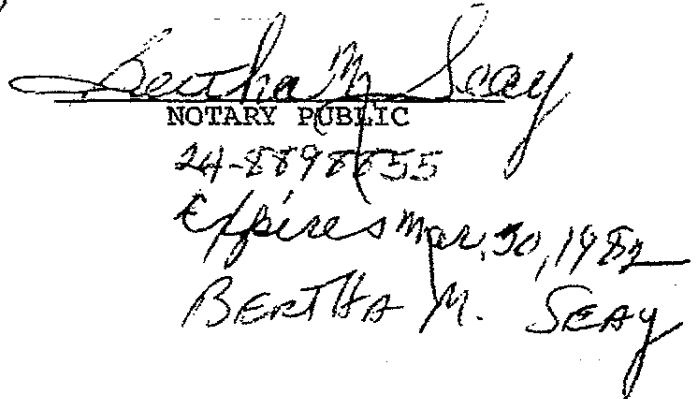 Bertha M Seay
NOTARY PUBLIC
24-8898855
Expires Mar. 30, 1982
BERTHA M. SEAY